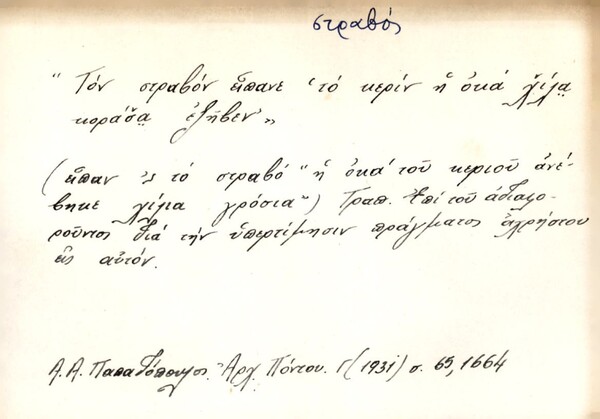 στραβός
“ Τὸν στραβὸν εἴπανε ‘τὸ κερὶν ἡ ὀκά χίλια
κοράσα̤ ἐξῆβεν’„
(εἶπαν ’ς τὸ στραβό “ἡ ὀκά τοῦ κεριοῦ ἀνέ-
βηκε χίλια γρόσια”) Τραπ. Ἐπί τοῦ ἀδιαφο-
ροῦντος διά τὴν ὑπερτίμησιν πράγματος ἀχρήστου
εἰς αὐτόν.
Α.Α. Παπαδόπουλος. Ἀρχ. Πόντου. Γ (1931) σ. 65, 1664